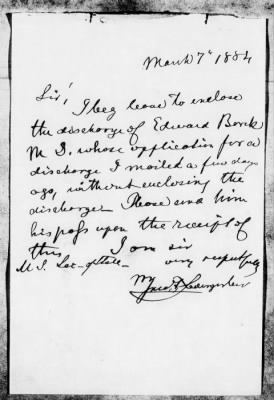 March 7th 1884
Sir, I beg leave to enclose
the discharge of Edward
M S. whose application for a
discharge I mailed a few days
ago, without enclosing the
discharge. Please send him
his pass upon the receipt of
this I am sir
very respectfully